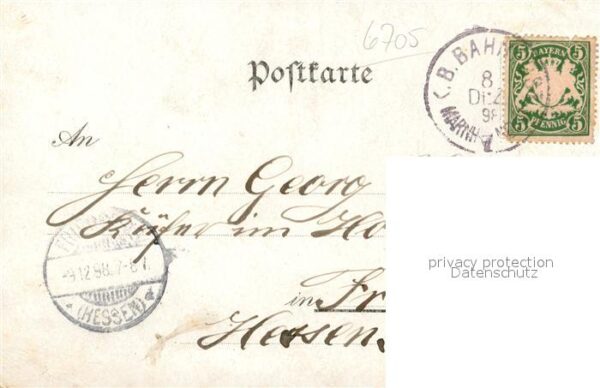 6705
Postkarte
K. B. BAHN
8
DEZ.
98
MARNH
BAYERN
5 5
5 5
PFENNIG
An
Herrn Georg
Küfer im Ho
in Fr
Hessen
9.12.98. 7-8
(HESSEN)
privacy protection
Datenschutz